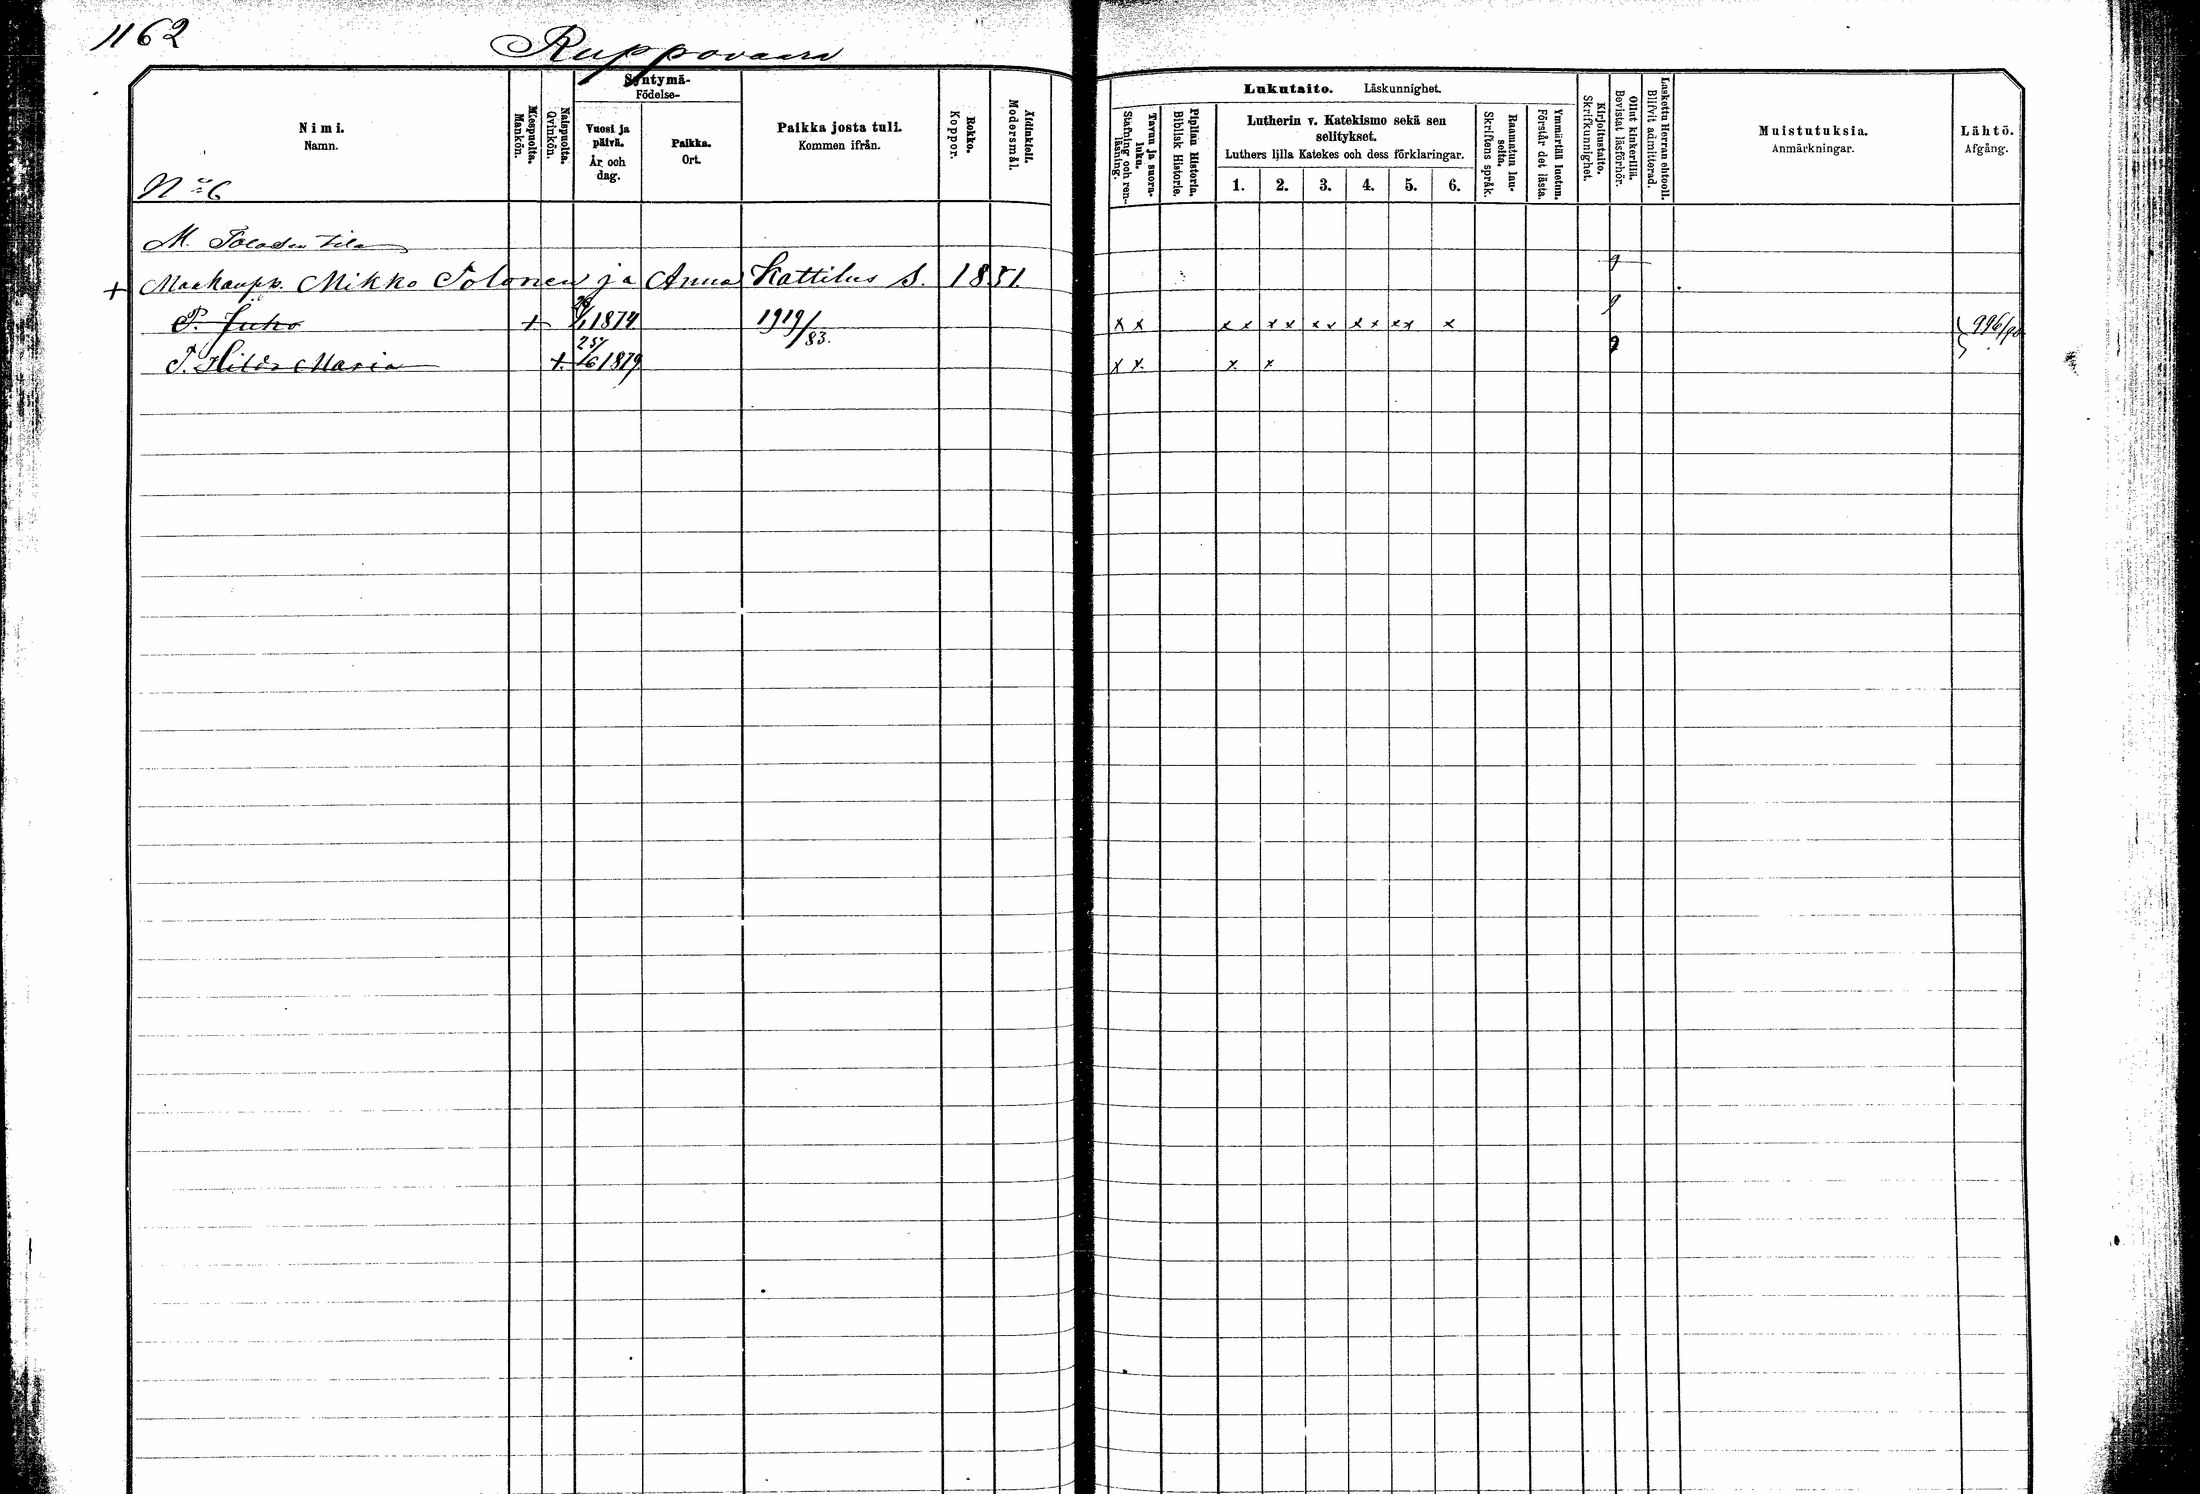 1162
Ruppovaara
Nimi.
Namn.
Miespuolta.
Mankön.
Naispuolta.
Qvinkön.
Syntymä-
Födelse-
Vuosi ja päivä.
År och dag.
Paikka.
Ort.
Paikka josta tuli.
Kommen ifrån.
Rokko.
Koppor.
Äidinkieli.
Modersmål.
Lukutaito. Läskunnighet.
Tavuu ja suora-luku.
Stafning och ren-läsning.
Piplian Historia.
Biblisk Historia.
Lutherin v. Katekismo sekä sen
selitykset.
Luthers lilla Katekes och dess förklaringar.
1. 2. 3. 4. 5. 6.
Raamatun lau-seita.
Skriftens språk.
Ymmärtää luetun.
Förstår det lästa.
Kirjoitustaito.
Skrifkunnighet.
Ollut kinkerillä.
Bevistat läsförhör.
Laskettu Herran ehtooll.
Blifvit admitterad.
Muistutuksia.
Anmärkningar.
Lähtö.
Afgång.
No 6
M. Tolosen tila
+ Maakaupp. Mikko Tolonen ja Anna Kattilus s. 1851
P. Juho + 1874 1919/83. x x x x x x x x x x x x x 996/90
T. Hilda Maria +. 25/6 1879 x x x x